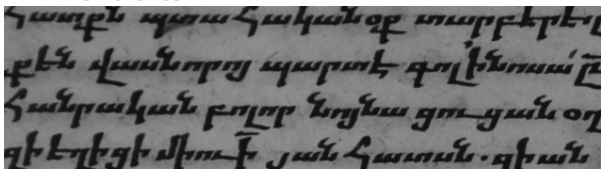 պատահականօք տարբերել
քէն վասնորոյ պարտ է գոլ ի նոսա
հանրական բոլոր նոյնա ցուցան օղ
զի եղիցի միութի յանհատսն. զի ան